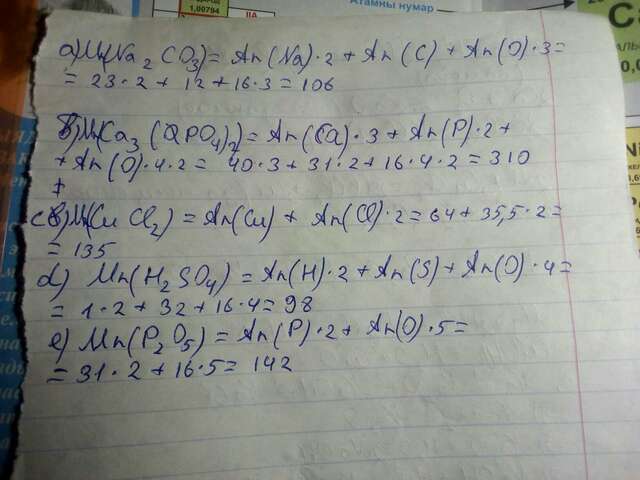 Атамны нумар
1,00794
IIA
а) Mr(Na2CO3) = Ar(Na)·2 + Ar(C) + Ar(O)·3=
= 23·2 + 12 + 16·3 = 106
б) Mr(Ca3(PO4)2) = Ar(Ca)·3 + Ar(P)·2 +
+ Ar(O)·4·2 = 40·3 + 31·2 + 16·4·2 = 310
+
c) Mr(CuCl2) = Ar(Cu) + Ar(Cl)·2 = 64 + 35,5·2=
= 135
d) Mr(H2SO4) = Ar(H)·2 + Ar(S) + Ar(O)·4=
= 1·2 + 32 + 16·4 = 98
e) Mr(P2O5) = Ar(P)·2 + Ar(O)·5=
= 31·2 + 16·5 = 142